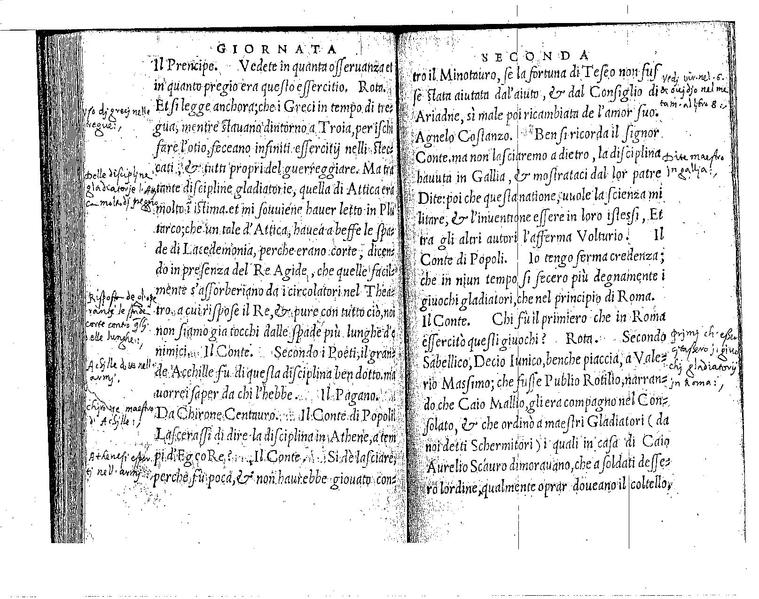 GIORNATA
Il Prencipe. Vedete in quanta osseruanza et
in quanto pregio era questo essercitio. Rota.
Et si legge anchora, che i Greci in tempo di tre=
gua, mentre stauano dintorno a Troia, per ischi
fare l'otio, feceano infiniti essercitij nelli stec=
cati, & tutti propri del guerreggiare. Ma tra
tante discipline gladiatorie, quella di Attica era
molto i istima. et mi souuiene hauer letto in Plu
tarco, che un tale d'Attica, hauea a beffe le spa=
de di Lacedemonia, perche erano corte, dicen=
do in presenza del Re Agide, che quelle facil=
mente s'assorberiano da i circolatori nel Thea=
tro, a cui rispose il Re, & pure con tutto ciò, noi
non siamo gia tocchi dalle spade più lunghe d'e
nimici. Il Conte. Secondo i Poeti, il gran=
de Acchille fu di questa disciplina ben dotto. ma
uorrei saper da chi l'hebbe. Il Pagano.
Da Chirone Centauro. Il Conte di Popoli
Lascerassi di dire la disciplina in Athene, a tem
pi d'Egeo Re? Il Conte. Si dè lasciare,
perche fu poca, & non haurebbe giouato con=
SECONDA
tro il Minotauro, se la fortuna di Teseo non fus
se stata aiutata dal'aiuto, & dal Consiglio di
Ariadne, sì male poi ricambiata de l'amor suo.
Agnelo Costanzo. Ben si ricorda il signor
Conte. ma non lasciaremo a dietro, la disciplina
hauuta in Gallia, & mostrataci dal lor patre
Dite: poi che questa natione, uuole la scienza mi
litare, & l'inuentione essere in loro istessi, Et
tra gli altri autori l'afferma Volturio. Il
Conte di Popoli. Io tengo ferma credenza;
che in niun tempo si fecero più degnamente i
giuochi gladiatori, che nel principio di Roma.
Il Conte. Chi fu il primiero che in Roma
essercitò questi giuochi? Rota. Secondo
Sabellico, Decio Iunico, benche piaccia, a Vale=
rio Massimo; che fusse Publio Rotilio, narran=
do che Caio Mallio, gli era compagno nel Con=
solato, & che ordinò a maestri Gladiatori (da
noi detti Schermitori) i quali in casa di Caio
Aurelio Scauro dimorauano, che a soldati desse=
rò lordine, qualmente oprar doueano il coltello,
Delle discipline
Achille
Dite maestro
in gallia
in Roma